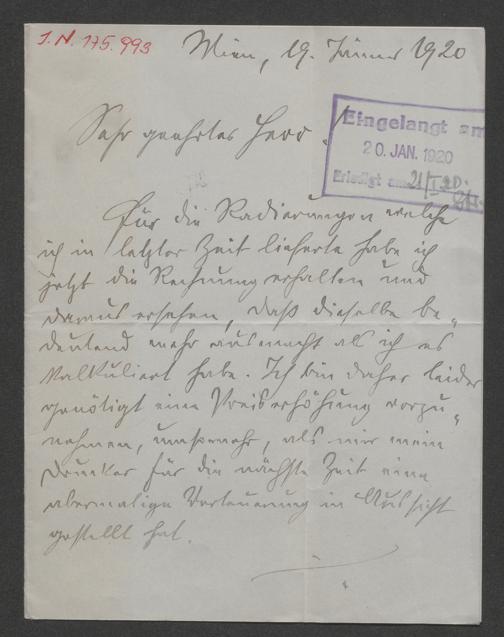 J.N. 175.993
Wien, 19. Jänner 1920
Sehr geehrter Herr.
Eingelangt am
20. JAN. 1920
Erledigt am 21/I 20.
Für die Radierungen welche
ich in letzter Zeit lieferte habe ich
jetzt die Rechnung erhalten und
daraus ersehen, daß dieselbe be„
deutend mehr ausmacht als ich es
kalkuliert habe. Ich bin daher leider
genötigt eine Preiserhöhung vorzu„
nehmen, umsomehr, als mir mein
Drucker für die nächste Zeit eine
abermalige Verteuerung in Aussicht
gestellt hat.